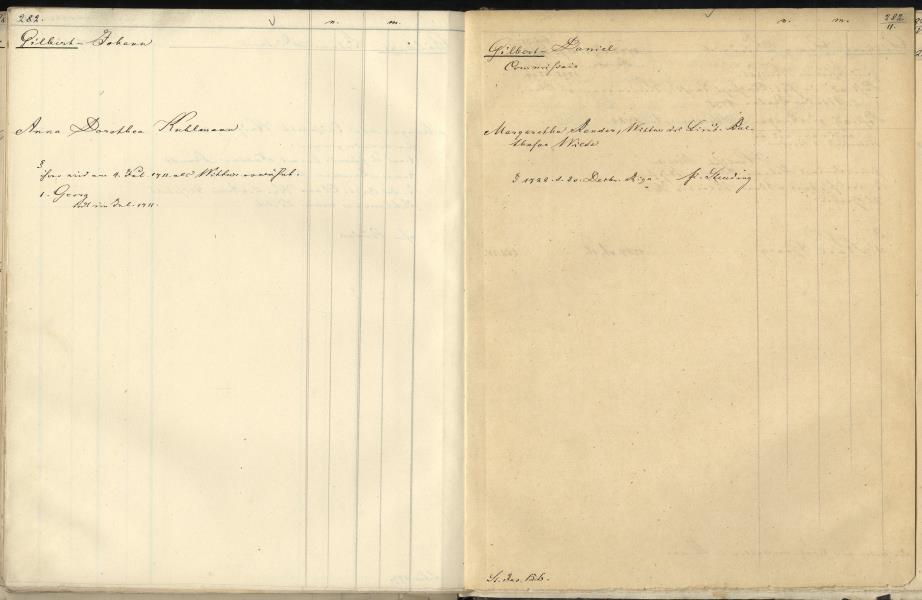 282.
n. m.
Gilbert - Johann
Anna Dorothea Kuhlmann
§
wird am 9. Jul. 1711. als Wittwe erwähnt.
1. Georg
im Jul. 1711.
n. m. 282
II.
Gilbert - Daniel
Commissair
Margaretha Render, Wittwe des Lieut. Bal-
thasar Wilde
§ 1722. d. 20. Decbr. Riga
St. Jac. Kb.